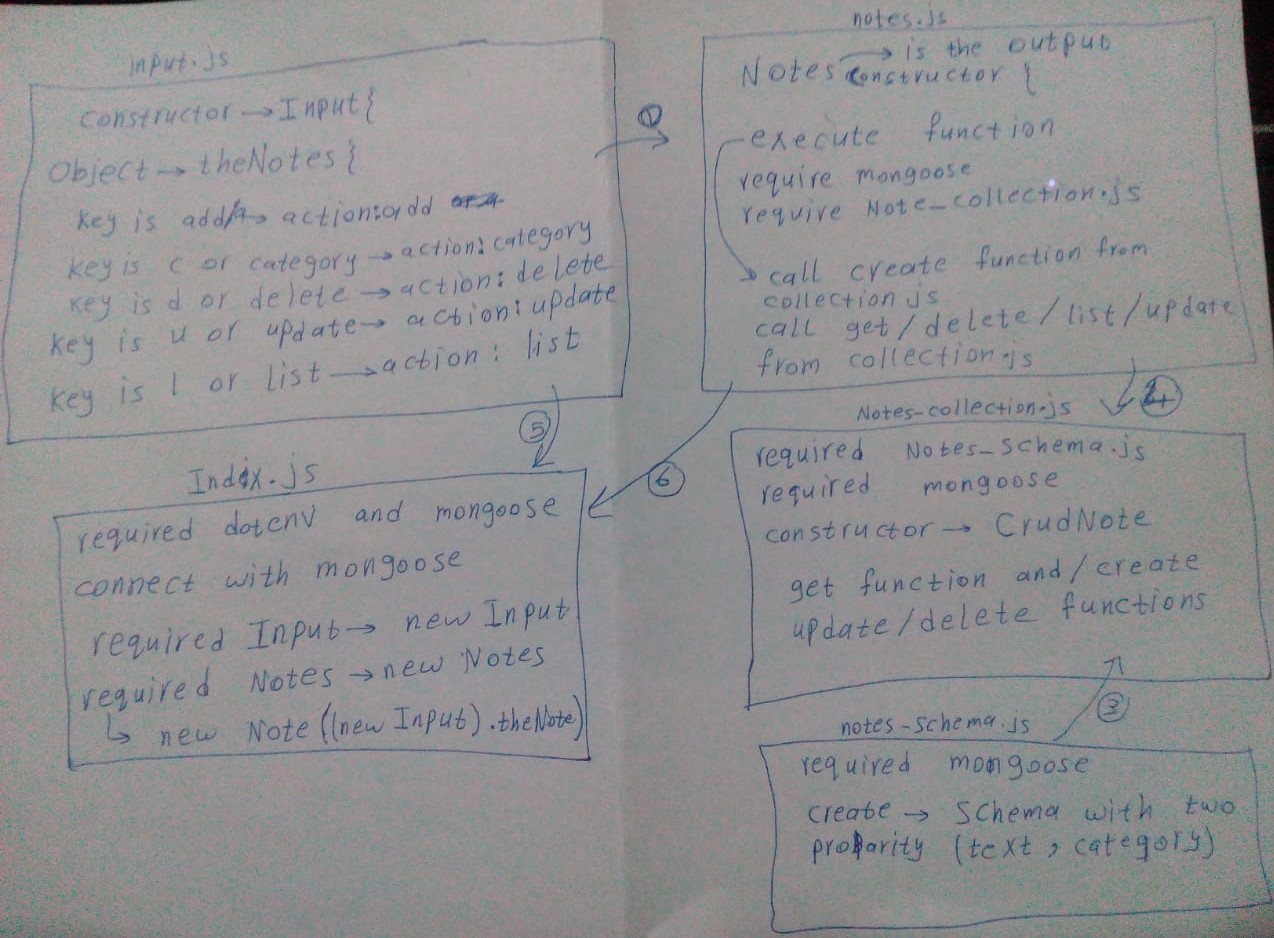 input.js
constructor → Input{
Object → theNotes{
key is add/a → action:add
key is c or category → action: category
key is d or delete → action: delete
key is u or update → action: update
key is l or list → action: list
notes.js
Notes constructor { → is the output
execute function
require mongoose
require Note_collection.js
call create function from
collection.js
call get/delete/list/update
from collection.js
①
⑤
⑥
Index.js
required dotenv and mongoose
connect with mongoose
required Input → new Input
required Notes → new Notes
↳ new Note((new Input).theNote)
Notes-collection.js
required Notes_schema.js
required mongoose
constructor → CrudNote
get function and/create
update/delete functions
③
notes-schema.js
required mongoose
create → Schema with two
proparity (text, category)